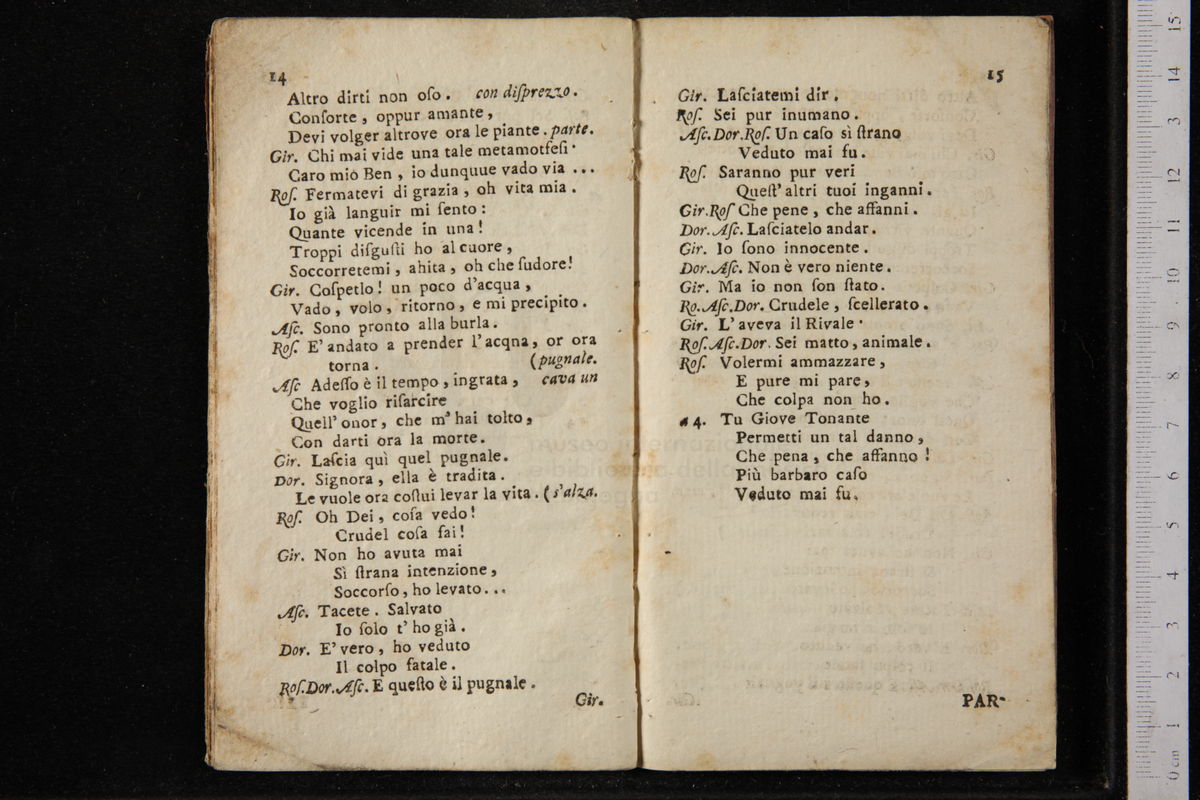 14
Altro dirti non oſo. con diſprezzo.
Conſorte, oppur amante,
Devi volger altrove ora le piante. parte.
Gir. Chi mai vide una tale metamotfeſi.
Caro mio Ben, io dunquue vado via ...
Roſ. Fermatevi di grazia, oh vita mia.
Io già languir mi ſento:
Quante vicende in una!
Troppi diſguſti ho al cuore,
Soccorretemi, ahita, oh che ſudore!
Gir. Coſpetlo! un poco d'acqua,
Vado, volo, ritorno, e mi precipito.
Aſc. Sono pronto alla burla.
Roſ. E' andato a prender l'acqna, or ora
torna. (pugnale.
Aſc Adeſſo è il tempo, ingrata, cava un
Che voglio riſarcire
Quell' onor, che m' hai tolto,
Con darti ora la morte.
Gir. Laſcia quì quel pugnale.
Dor. Signora, ella è tradita.
Le vuole ora coſtui levar la vita. (s'alza.
Roſ. Oh Dei, coſa vedo!
Crudel coſa fai!
Gir. Non ho avuta mai
Sì ſtrana intenzione,
Soccorſo, ho levato...
Aſc. Tacete. Salvato
Io ſolo t' ho già.
Dor. E' vero, ho veduto
Il colpo fatale.
Roſ.Dor.Aſc. E queſto è il pugnale.
Gir.
15
Gir. Laſciatemi dir.
Roſ. Sei pur inumano.
Aſc.Dor.Roſ. Un caſo sì ſtrano
Veduto mai fu.
Roſ. Saranno pur veri
Queſt' altri tuoi inganni.
Gir.Roſ Che pene, che affanni.
Dor.Aſc. Laſciatelo andar.
Gir. Io ſono innocente.
Dor.Aſc. Non è vero niente.
Gir. Ma io non ſon ſtato.
Ro.Aſc.Dor. Crudele, ſcellerato.
Gir. L' aveva il Rivale.
Roſ.Aſc.Dor. Sei matto, animale.
Roſ. Volermi ammazzare,
E pure mi pare,
Che colpa non ho.
a 4. Tu Giove Tonante
Permetti un tal danno,
Che pena, che affanno!
Più barbaro caſo
Veduto mai fu.
PAR-
15
14
3
12
11
10
9
8
7
6
5
4
3
2
1
0 cm